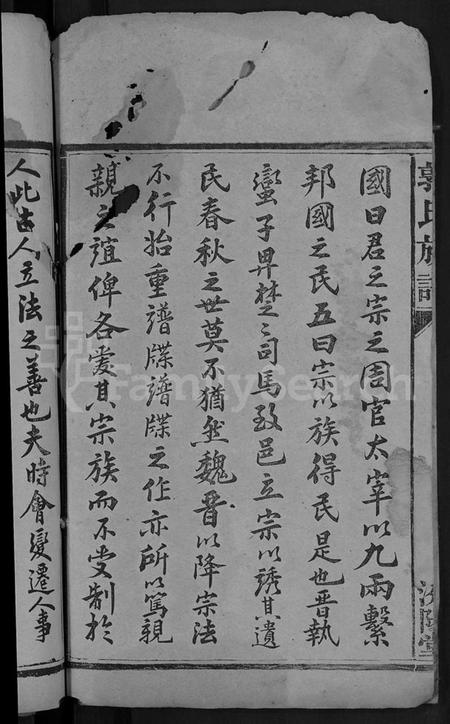 郭氏族譜
國曰君之宗之周官太宰以九兩繫
邦國之民五曰宗以族得民是也晉執
蠻子畀楚楚司馬致邑立宗以誘其遺
民春秋之世莫不猶然魏晉以降宗法
不行始重譜牒譜牒之作亦所以篤親
親之誼俾各愛其宗族而不受制於
人此古人立法之善也夫時會變遷人事
FamilySearch